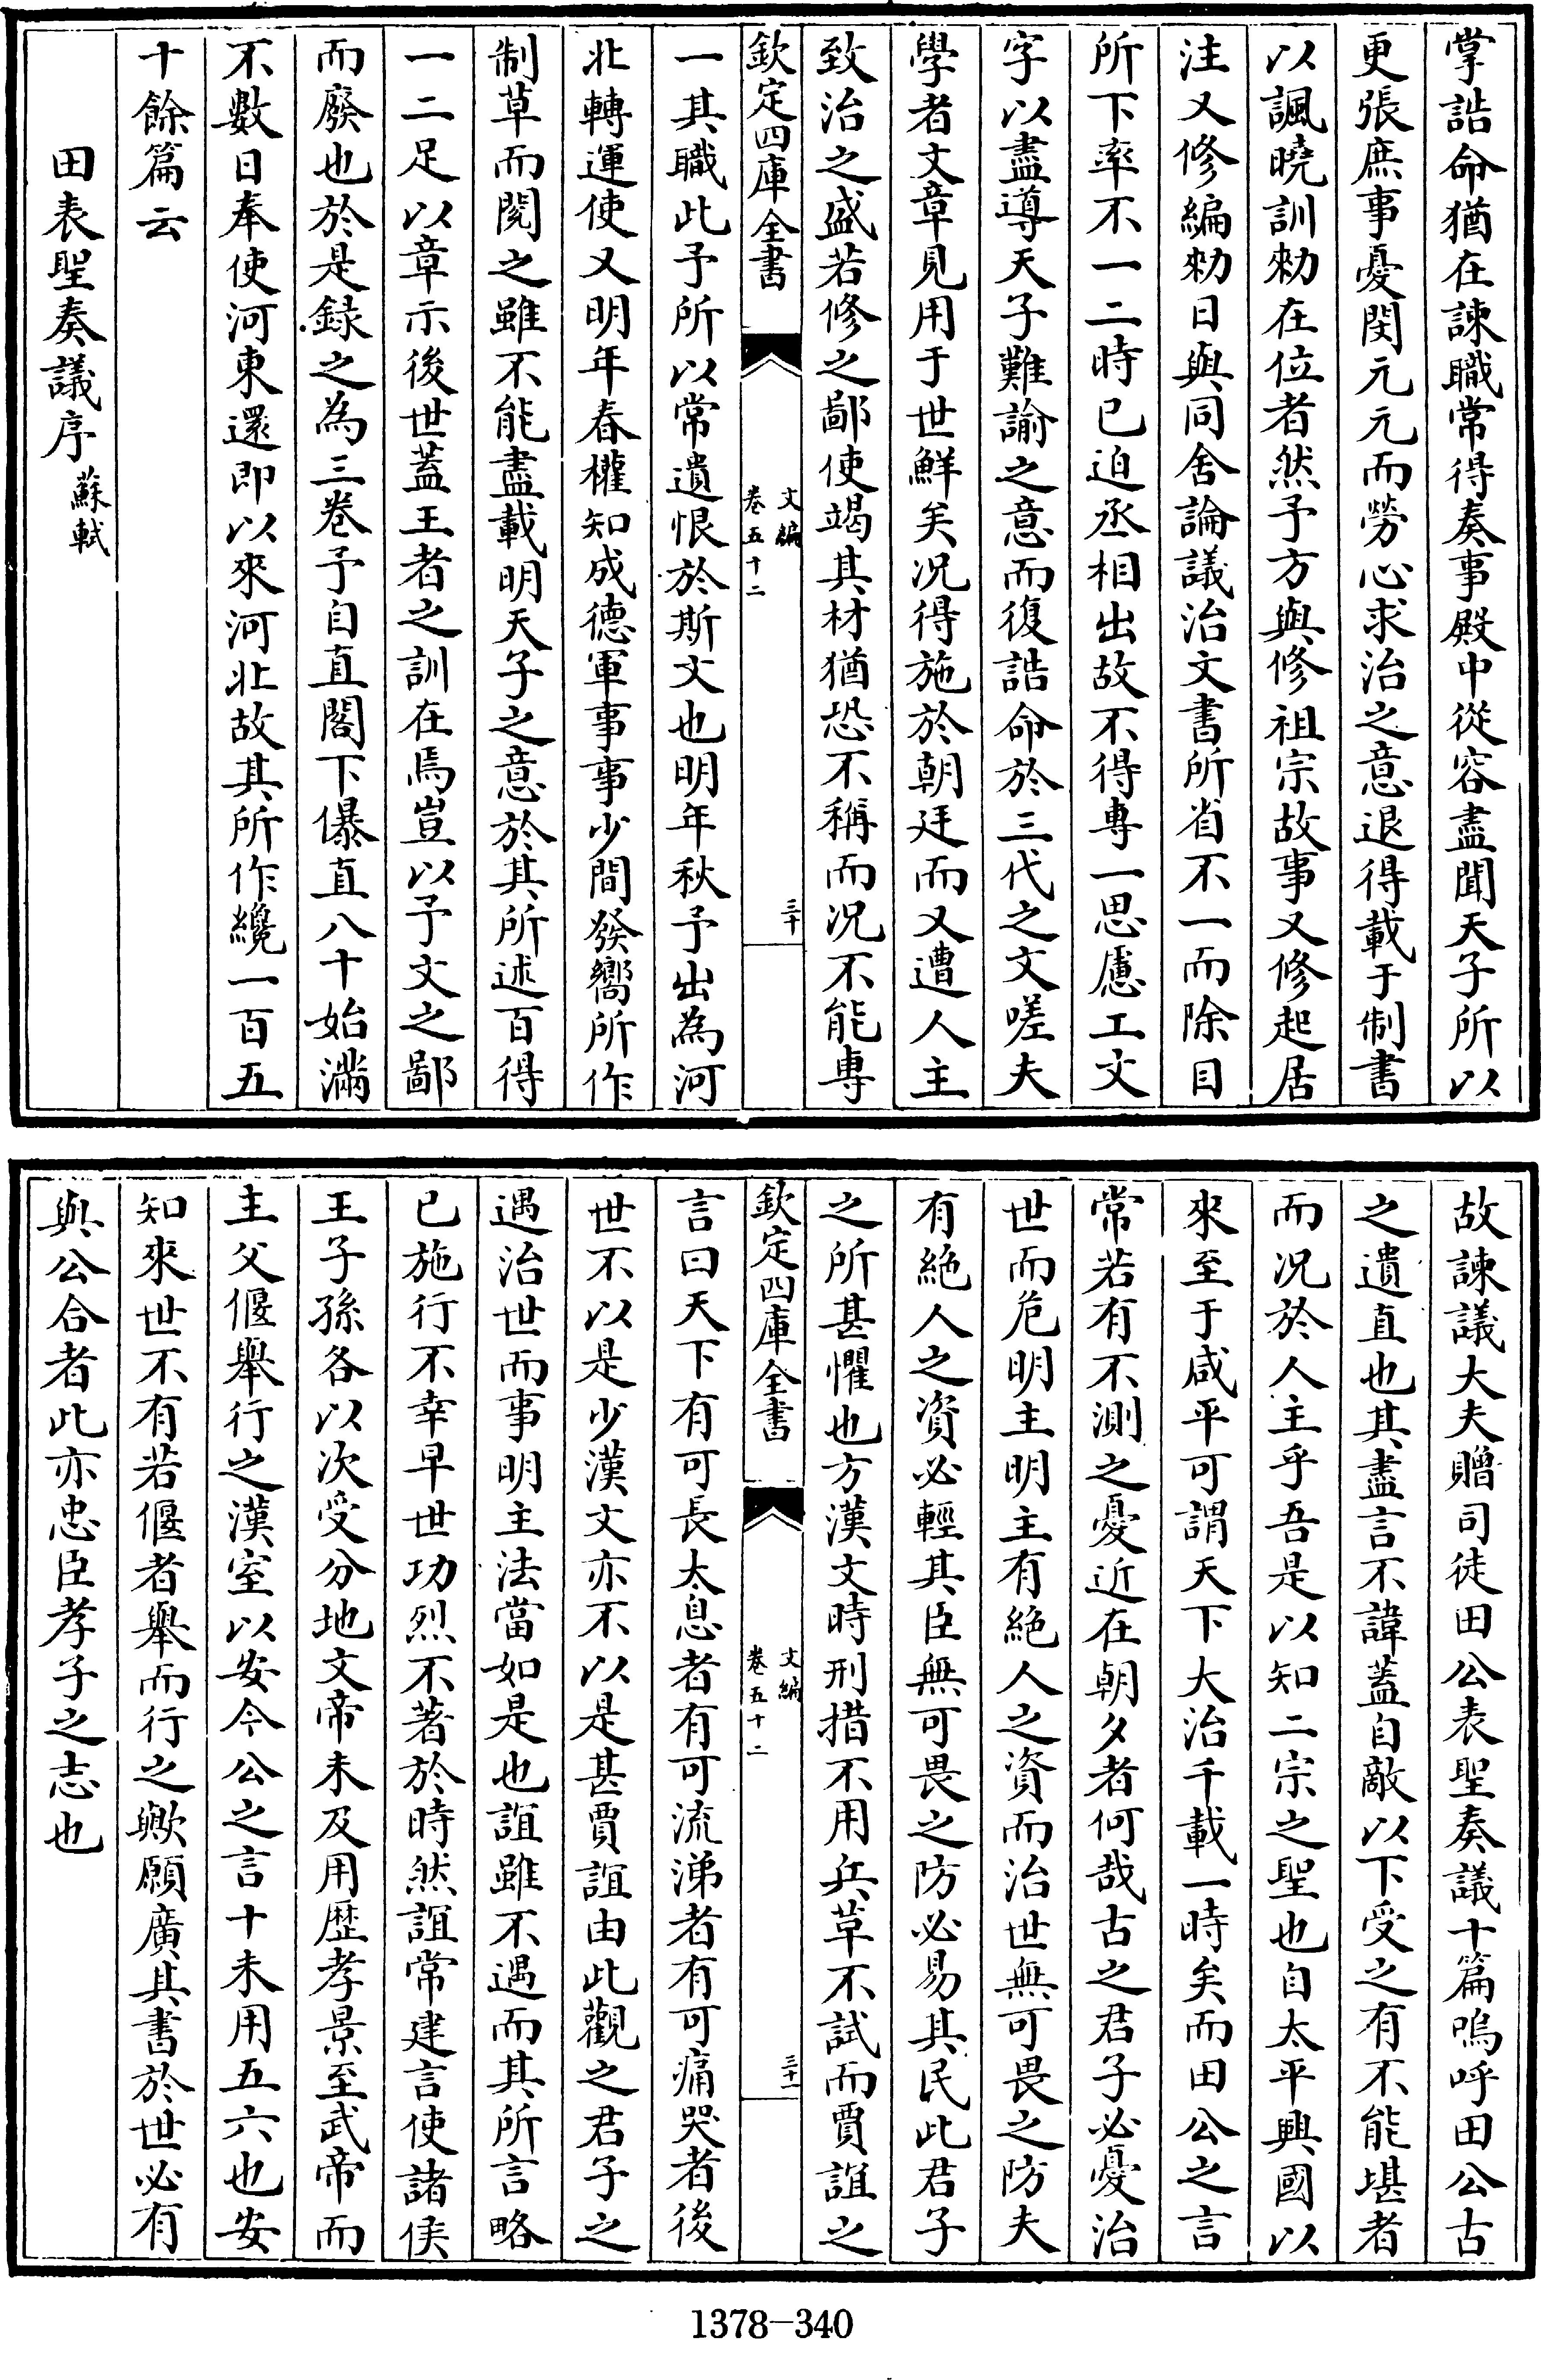 掌誥命猶在諫職常得奏事殿中從容盡聞天子所以
更張庶事憂閔元元而勞心求治之意退得載于制書
以諷曉訓勑在位者然予方與修祖宗故事又修起居
注又修編勑日與同舍論議治文書所省不一而除目
所下率不一二時已迫丞相出故不得專一思慮工文
字以盡導天子難諭之意而復誥命於三代之文嗟夫
學者文章見用于世鮮矣况得施於朝廷而又遭人主
致治之盛若修之鄙使竭其材猶恐不稱而况不能專
欽定四庫全書
文編
卷五十二
三十
一其職此予所以常遺恨於斯文也明年秋予出為河
北轉運使又明年春權知成德軍事事少間發嚮所作
制草而閱之雖不能盡載明天子之意於其所述百得
一二足以章示後世蓋王者之訓在焉豈以予文之鄙
而廢也於是録之為三卷予自直閣下儤直八十始滿
不數日奉使河東還即以來河北故其所作纔一百五
十餘篇云
田表聖奏議序 蘇軾
故諫議大夫贈司徒田公表聖奏議十篇嗚呼田公古
之遺直也其盡言不諱蓋自敵以下受之有不能堪者
而况於人主乎吾是以知二宗之聖也自太平興國以
來至于咸平可謂天下大治千載一時矣而田公之言
常若有不測之憂近在朝夕者何哉古之君子必憂治
世而危明主明主有絶人之資而治世無可畏之防夫
有絶人之資必輕其臣無可畏之防必易其民此君子
之所甚懼也方漢文時刑措不用兵革不試而賈誼之
欽定四庫全書
文編
卷五十二
三十一
言曰天下有可長太息者有可流涕者有可痛哭者後
世不以是少漢文亦不以是甚賈誼由此觀之君子之
遇治世而事明主法當如是也誼雖不遇而其所言略
已施行不幸早世功烈不著於時然誼常建言使諸侯
王子孫各以次受分地文帝未及用歴孝景至武帝而
主父偃舉行之漢室以安今公之言十未用五六也安
知來世不有若偃者舉而行之歟願廣其書於世必有
與公合者此亦忠臣孝子之志也
1378-340